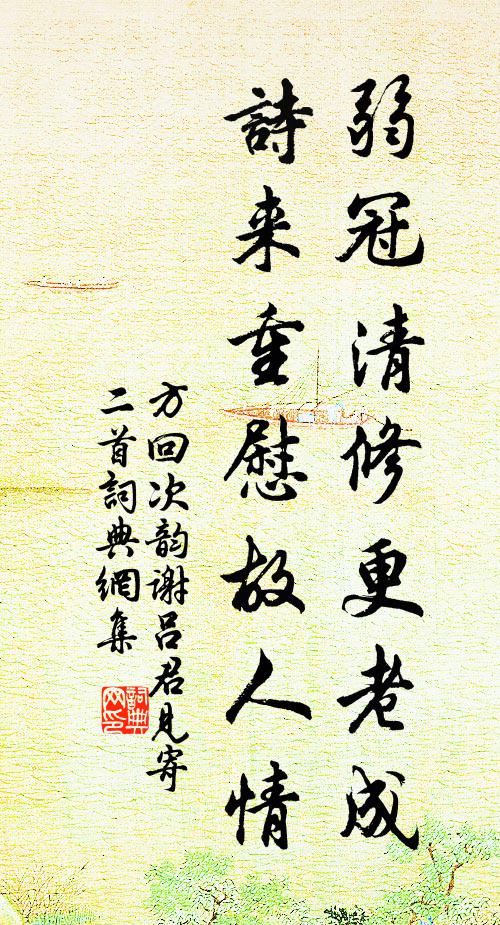 弱冠清修更老成
詩来重慰故人情
方回次韵谢吕君见寄
二首詞典網集
詞典网印